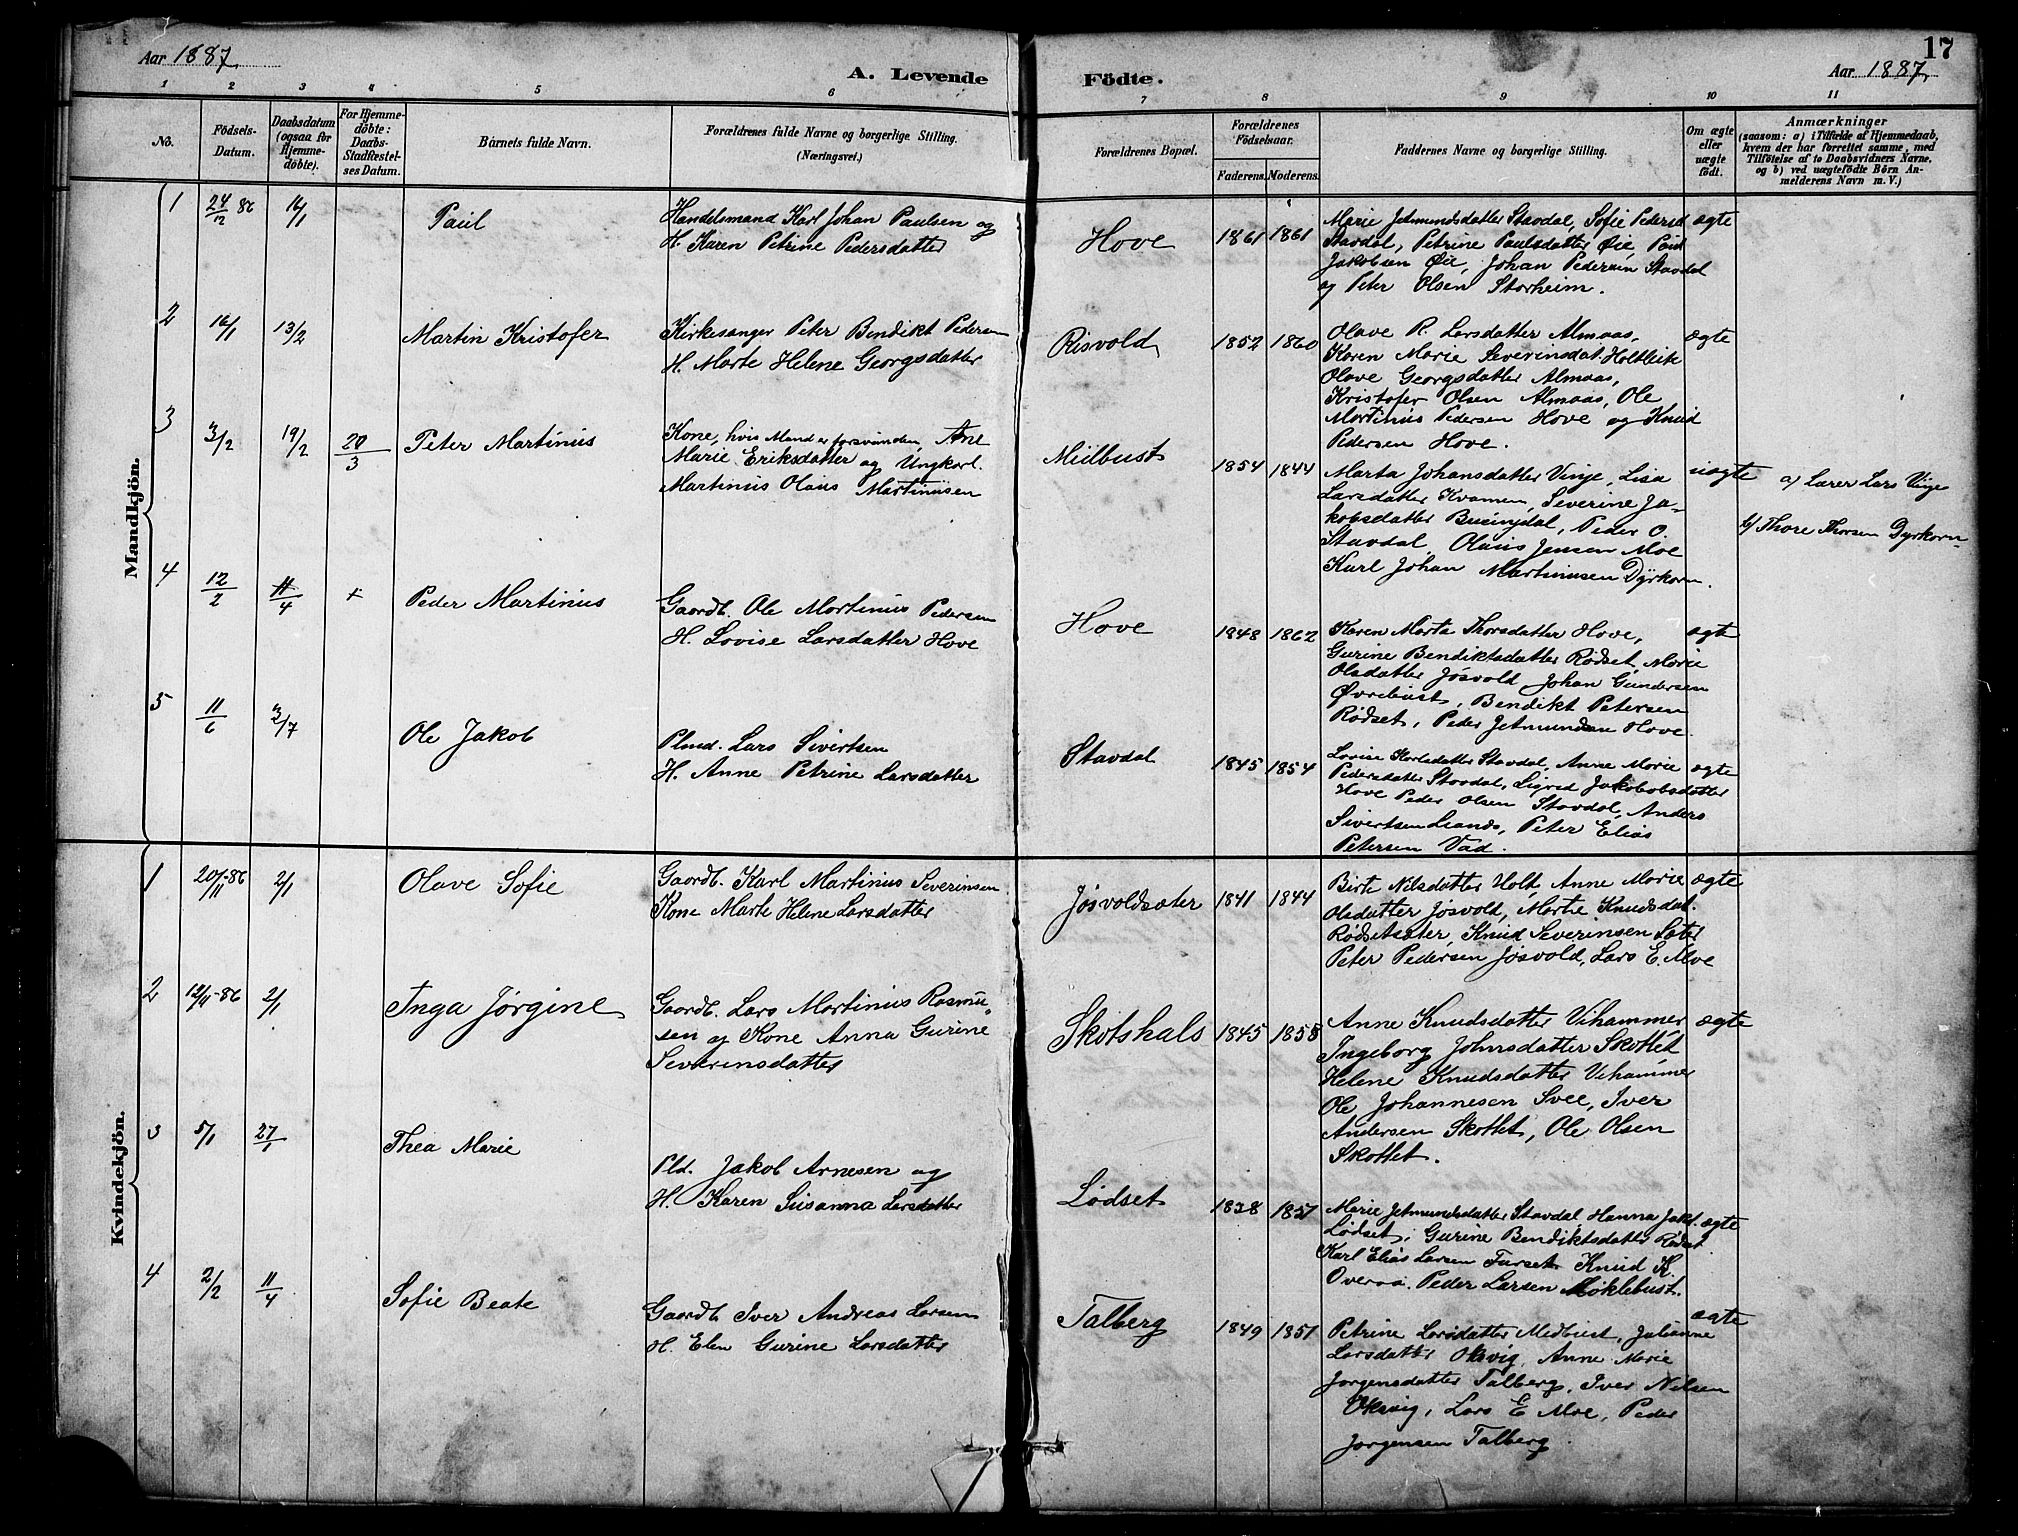 17
Aar 1887.
A. Levende
Födte.
Aar 1887.
1 2 3 4 5 6 7 8 9 10 11
No.
Födsels-
Datum.
Daabsdatum
(ogsaa for
Hjemme-
döbte).
For Hjemme-
döbte:
Daabs-
Stadfæstel-
ses Datum.
Barnets fulde Navn.
Forældrenes fulde Navne og borgerlige Stilling.
(Næringsvei.)
Forældrenes Bopæl.
Forældrenes
Födselsaar.
Faderens. Moderens.
Faddernes Navne og borgerlige Stilling.
Om ægte
eller
uægte
födt.
Anmærkninger
(saasom: a) i Tilfælde af Hjemmedaab,
hvem der har forrettet samme, med
Tilföielse af to Daabsvidners Navne,
og b) ved uægtefödte Börn An-
melderens Navn m. V.)
Mandkjön.
1 24/12 86 16/1 Paul
Handelsmand Karl Johan Paulsen og
H. Karen Petrine Pedersdatter
Hove 1861 1861
Marie Jetmundsdatter Stavdal, Sofie Pedersd
Stavdal, Petrine Paulsdatter Øie, Paul
Jakobsen Øie, Johan Pedersen Stavdal
og Peter Olsen Storheim.
ægte
2 16/1 13/2 Martin Kristofer
Kirkesanger Peter Bendikt Pedersen
H. Marte Helene Georgsdatter
Risvold 1852 1860
Olave R. Larsdatter Almaas,
Karen Marie Severinsdat. Holtbik
Olave Georgsdatter Almaas,
Kristofer Olsen Almaas, Ole
Martinus Pedersen Hove og Knud
Pedersen Hove.
ægte
3 3/2 19/2 20/3 Peter Martinus
Kone, hvis Mand er forsvunden, Ane
Marie Eriksdatter og Ungkarl.
Martinus Olaus Martinusen
Midbust 1854 1844
Marta Johansdatter Vinje, Lisa
Larsdatter Kvamen, Severine Ja-
kobsdatter Bueinsdal, Peder O.
Stavdal, Olaus Jensen Moe
Karl Johan Martinusen Dyrkorn.
uægte
a) Lærer Lars Vinje
b) Thore Thorsen Dyrkorn
4 12/2 11/4 + Peder Martinius
Gaardb. Ole Martinus Pedersen
H. Lovise Larsdatter Hove
Hove 1848 1862
Karen Marta Thorsdatter Hove,
Gurine Bendiktsdatter Rødset, Marie
Olsdatter Jøsvold, Johan Gundersen
Øvrebust, Bendikt Petersen
Rødset, Peder Jetmundsen Hove.
ægte
5 11/6 3/7 Ole Jakob
Plmd. Lars Sivertsen
H. Anne Petrine Larsdatter
Stavdal 1845 1854
Lovise Karlsdatter Stavdal, Anne Marie
Pedersdatter Stavdal, Sigrid Jakobobsdatter
Hove Peder Olsen Stavdal, Anders
Sivertsen Liands, Peter Elias
Petersen Vad.
ægte
Kvindekjön.
1 20/11-86 2/1 Olave Sofie
Gaardb. Karl Martinius Severinsen
Kone Marte Helene Larsdatter
Jøsvoldsæter 1841 1844
Birte Nilsdatter Holt, Anne Marie
Olsdatter Jøsvold, Martie Knudsdat.
Rødsetsæter, Knud Severinsen Sæter
Peter Pedersen Jøsvold, Lars E. Moe
ægte
2 12/11-86 2/1 Inga Jørgine
Gaardb. Lars Martinius Rasmu-
sen og Kone Anna Gurine
Severinsdatter
Skotshals 1845 1858
Anne Knudsdatter Vihammer
Ingeborg Johnsdatter Skottet
Helene Knudsdatter Vihammer
Ole Johannesen Svee, Iver
Andersen Skottet, Ole Olsen
Skottet.
ægte
3 5/1 27/1 Thea Marie
Pld. Jakob Arnesen og
H. Karen Susanna Larsdatter
Lødset 1828 1851
Marie Jetmundsdatter Stavdal Hanna Jakt.
Lødset, Gurine Bendiktsdatter Rødset
Karl Elias Larsen Furset, Knud K.
Overaa. Peder Larsen Møklebust.
ægte
4 2/2 11/4 Sofie Beate
Gaardb Iver Andreas Larsen
H. Elen Gurine Larsdatter
Talberg 1849 1851
Petrine Larsdatter Midbust, Julianne
Larsdatter Oksvig, Anne Marie
Jørgensdatter Talberg, Iver Nilsen
Oksvig, Lars E Moe, Peder
Jørgensen Talberg
ægte